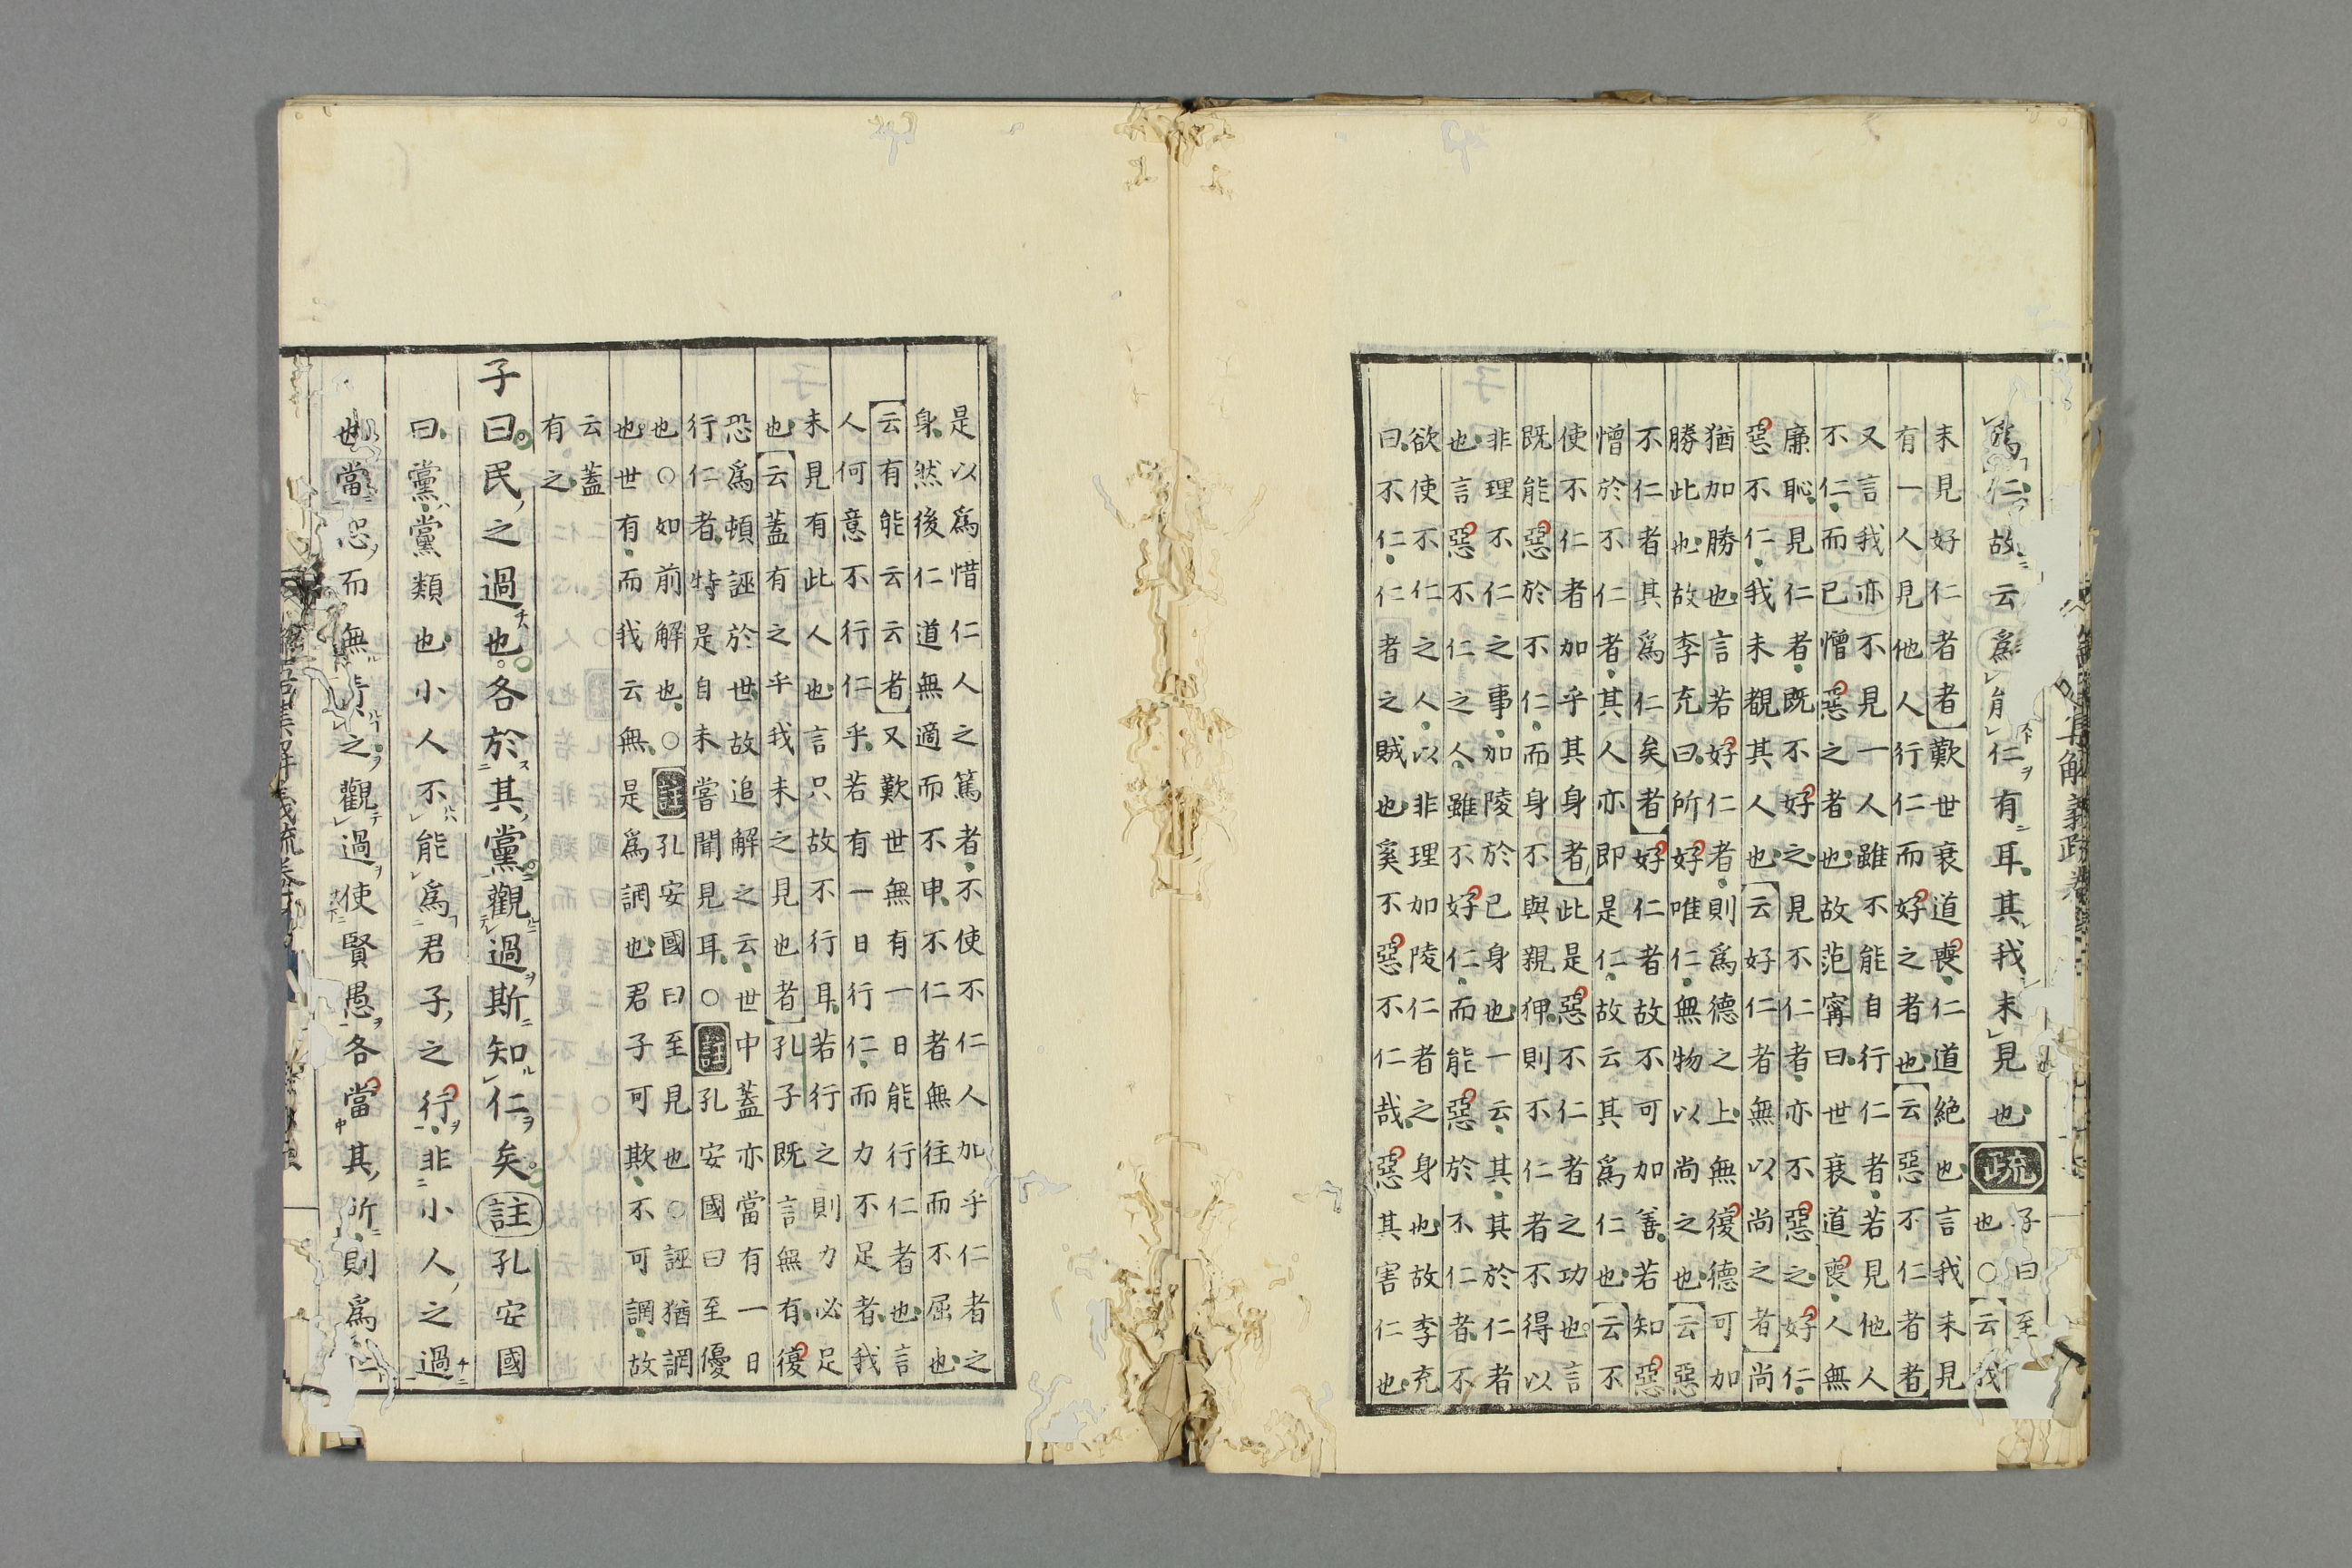 爲仁故云爲仁有耳其我未見也疏子曰至
也○云我
未見好仁者者歎世衰道喪仁道絶也言我未見
有一人見他人行仁而好之者也云惡不仁者者
又言我亦不見一人雖不能自行仁者若見他人
不仁而已憎惡之者也故范寗曰世衰道喪人無
廉恥見仁者既不好之見不仁者亦不惡之好仁
惡不仁我未覩其人也云好仁者無以尚之者尚
猶加勝也言若好仁者則爲德之上無復德可加
勝此也故李充曰所好唯仁無物以尚之也云惡
不仁者其爲仁矣者好仁者故不可加善若知惡
憎於不仁者其人亦即是仁故云其爲仁也云不
使不仁者加乎其身者此是惡不仁者之功也言
既能惡於不仁而身不與親狎則不仁者不得以
非理不仁之事加陵於已身也一云其其於仁者
也言惡不仁之人雖不好仁而能惡於不仁者不
欲使不仁之人以非理加陵仁者之身也故李充
曰不仁仁者之賊也奚不惡不仁哉惡其害仁也
是以爲惜仁人之篤者不使不仁人加乎仁者之
身然後仁道無適而不申不仁者無往而不屈也
云有能云云者又歎世無有一日能行仁者也言
人何意不行仁乎若有一日行仁而力不足者我
未見有此人也言只故不行耳若行之則力必足
也云蓋有之乎我未之見也者孔子既言無有復
恐爲頓誣於世故追解之云世中蓋亦當有一日
行仁者特是自未嘗聞見耳○註孔安國曰至優
也○如前解也○註孔安國曰至見也○誣猶誷
也世有而我云無是爲誷也君子可欺不可誷故
云蓋
有之
子曰民之過也各於其黨觀過斯知仁矣註孔安國
曰黨黨類也小人不能爲君子之行非小人之過
也當恕而無責之觀過使賢愚各當其所則爲仁